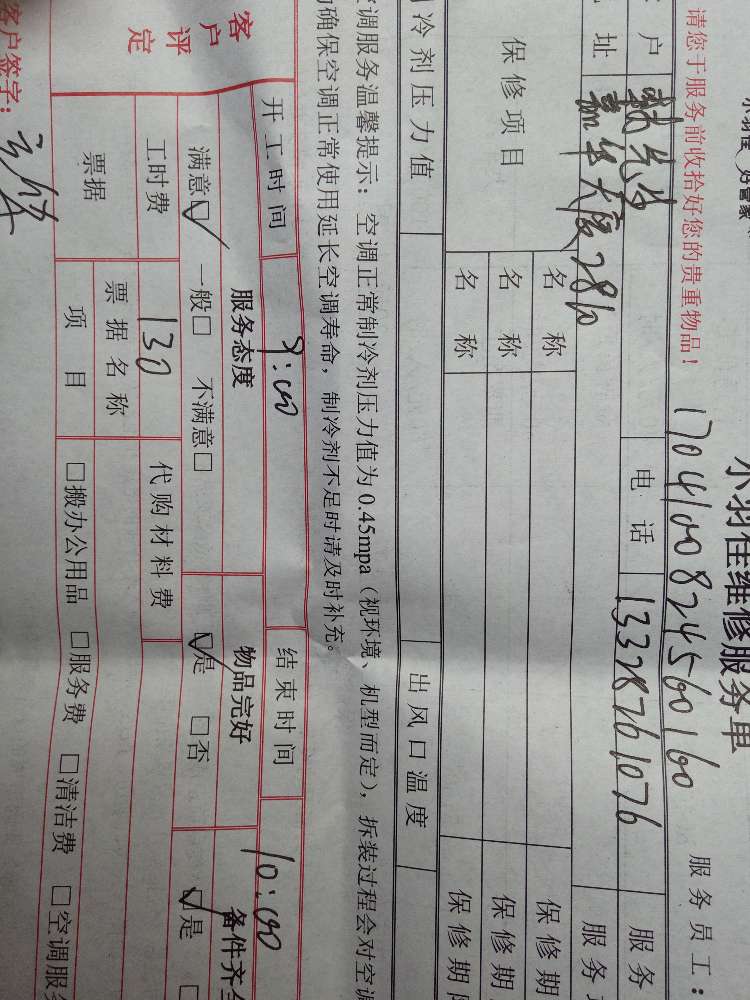 小羽佳维修服务单
请您于服务前收拾好您的贵重物品！
1704100824560160
服务员工：
户
电话
13328761076
服务
址
嘉华大厦2810
服务
保修项目
名称
保修期
名称
保修期
名称
保修期
冷剂压力值
出风口温度
调服务温馨提示：空调正常制冷剂压力值为0.45mpa（视环境、机型而定），拆装过程会对空调
确保空调正常使用延长空调寿命，制冷剂不足时请及时补充。
客户评定
开工时间
9:00
结束时间
10:00
服务态度
物品完好
备件齐全
满意☑ 一般□ 不满意□
☑是 □否
☑是 □
工时费
130
代购材料费
票据
票据名称
项目
□搬办公用品 □服务费 □清洁费 □空调服务
客户签字：